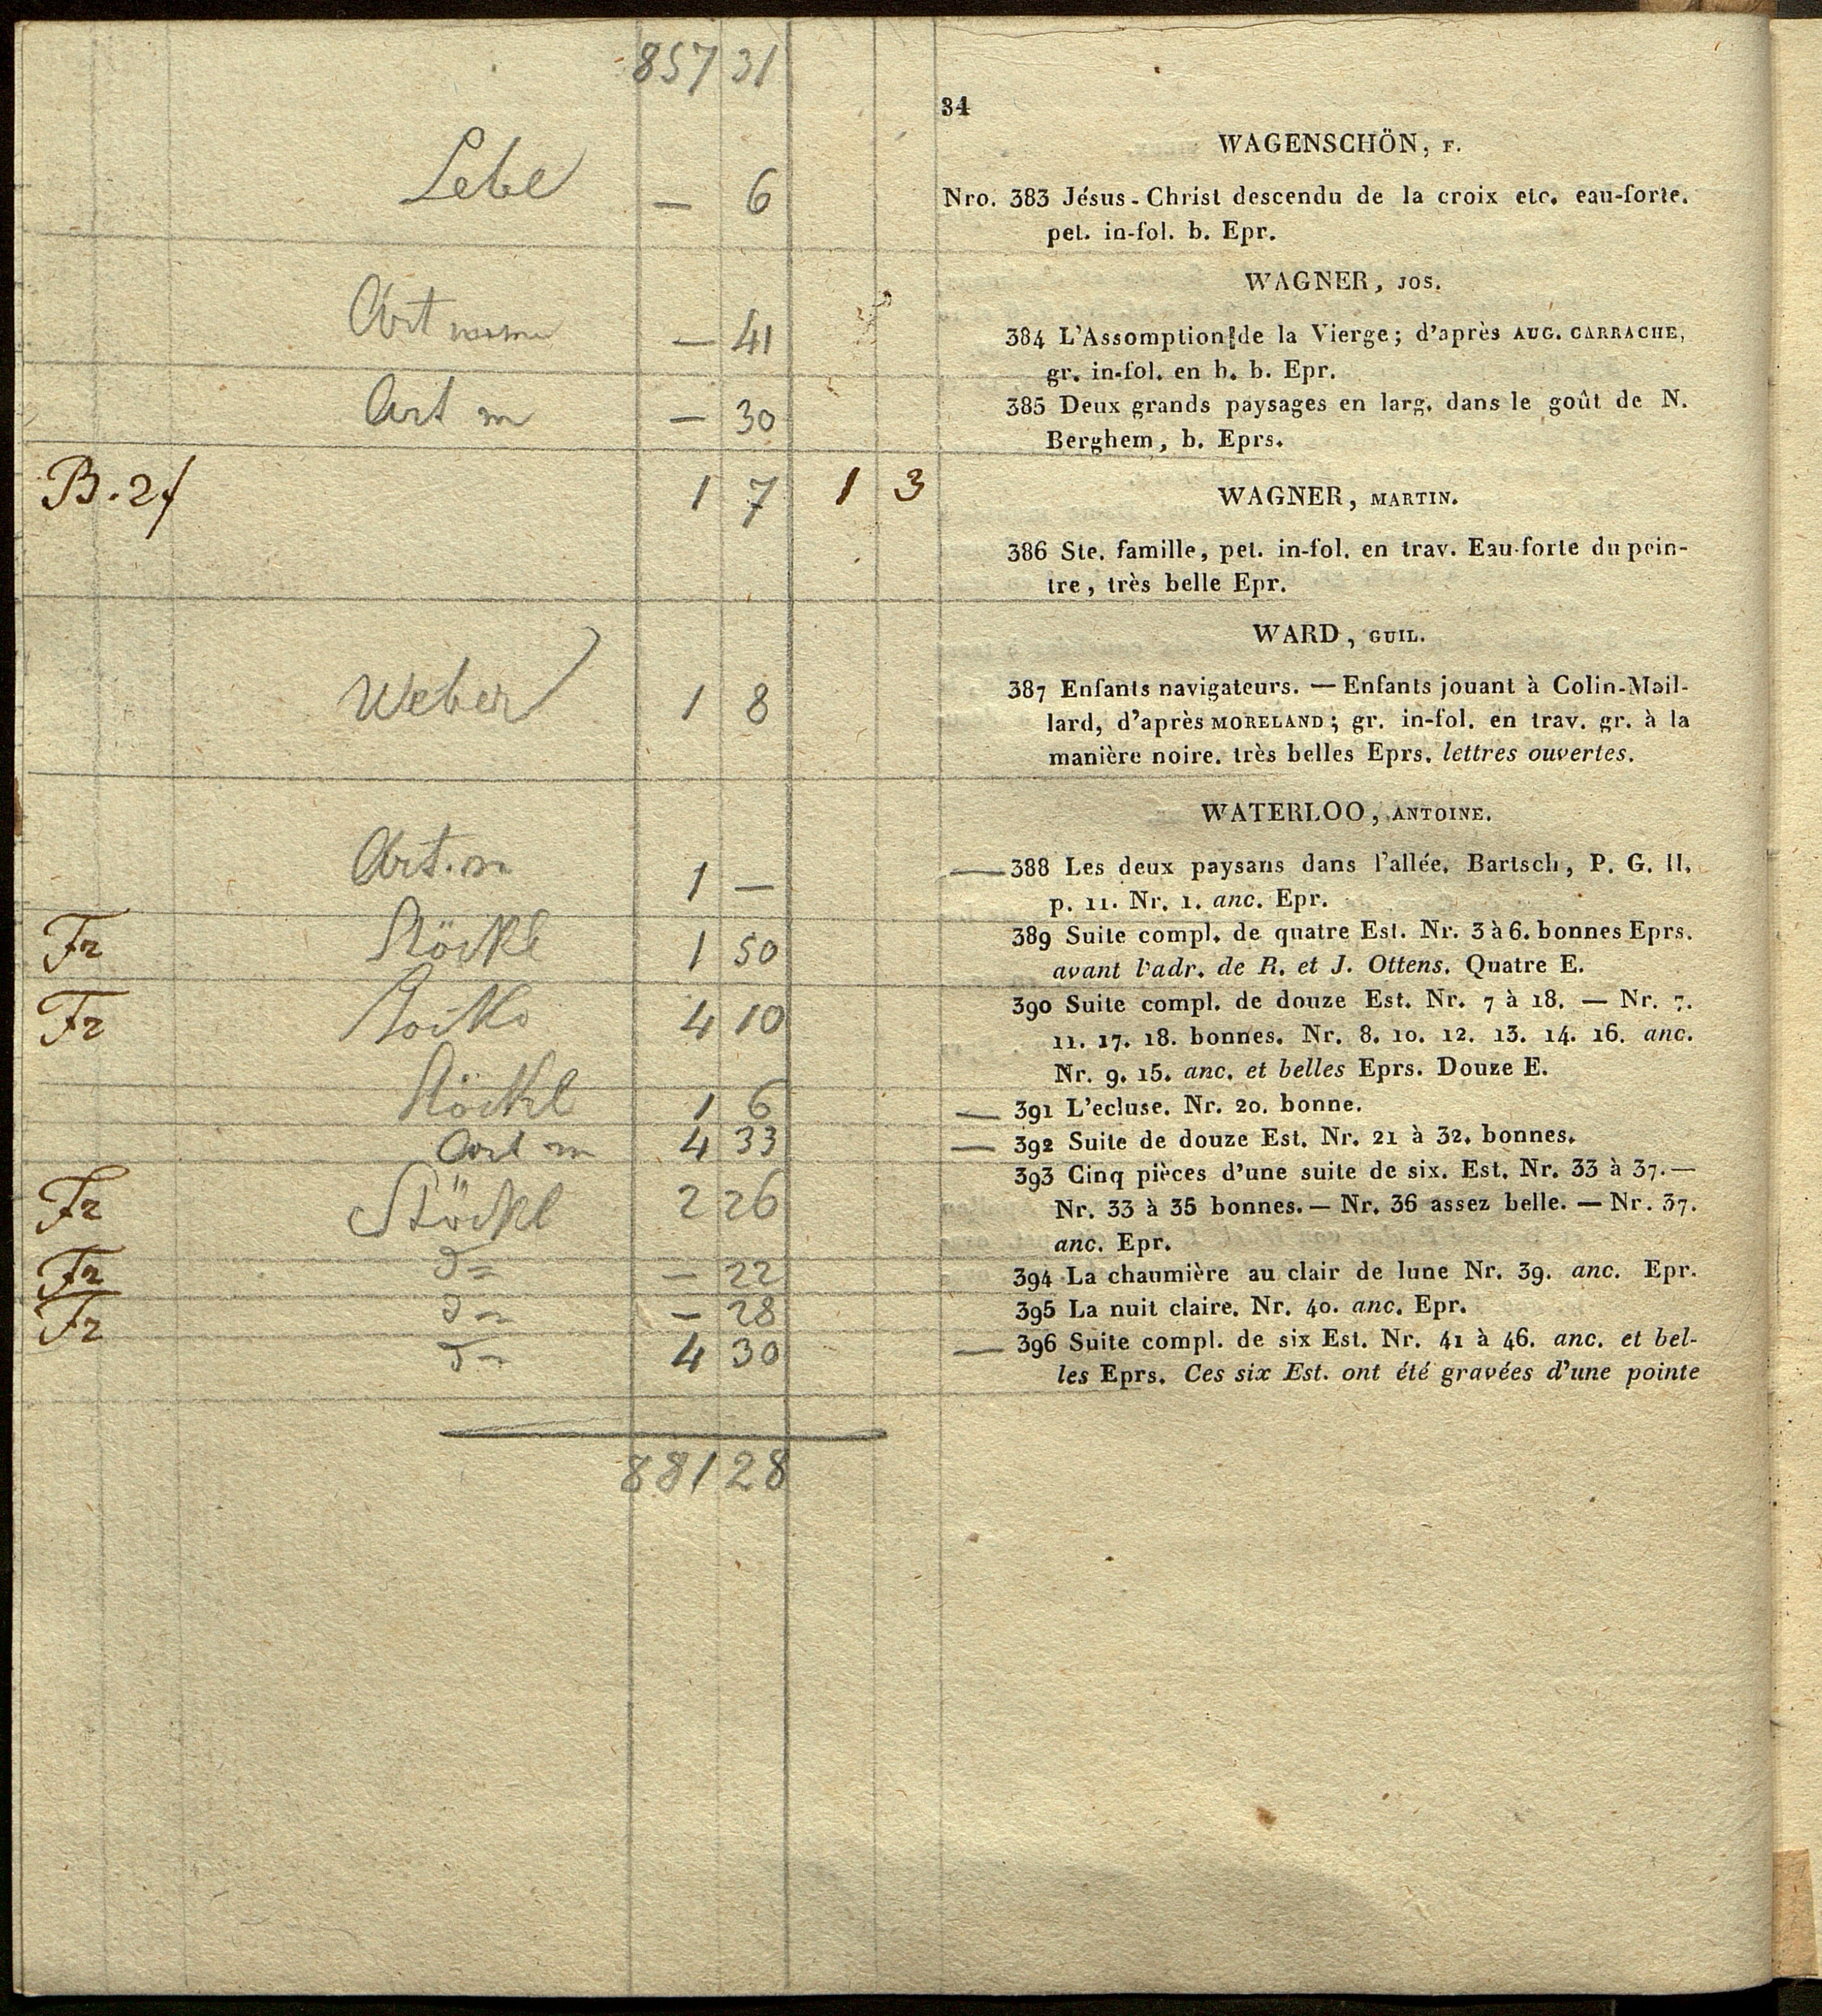 857 31
34
WAGENSCHÖN, F.
Lebe — 6
Nro. 383 Jésus-Christ descendu de la croix etc. eau-forte.
pet. in-fol. b. Epr.
WAGNER, JOS.
Art — 41
384 L'Assomption de la Vierge; d'après AUG. CARRACHE,
gr. in-fol. en h. b. Epr.
Art m — 30
385 Deux grands paysages en larg. dans le goût de N.
Berghem, b. Eprs.
B. 2f 1 7 1 3
WAGNER, MARTIN.
386 Ste. famille, pet. in-fol. en trav. Eau-forte du pein-
tre, très belle Epr.
WARD, GUIL.
Weber 1 8
387 Enfants navigateurs. — Enfants jouant à Colin-Mail-
lard, d'après MORELAND; gr. in-fol. en trav. gr. à la
manière noire. très belles Eprs. lettres ouvertes.
WATERLOO, ANTOINE.
Art. m 1 —
— 388 Les deux paysans dans l'allée. Bartsch, P. G. II.
p. 11. Nr. 1. anc. Epr.
Fr Stöckl 1 50
389 Suite compl. de quatre Est. Nr. 3 à 6. bonnes Eprs.
avant l'adr. de R. et J. Ottens. Quatre E.
Fr 4 10
390 Suite compl. de douze Est. Nr. 7 à 18. — Nr. 7.
11. 17. 18. bonnes. Nr. 8. 10. 12. 13. 14. 16. anc.
Nr. 9. 15. anc. et belles Eprs. Douze E.
Stöckl 1 6
— 391 L'ecluse. Nr. 20. bonne.
Art m 4 33
— 392 Suite de douze Est. Nr. 21 à 32. bonnes.
Fr Stöckl 2 26
393 Cinq pièces d'une suite de six. Est. Nr. 33 à 37.—
Nr. 33 à 35 bonnes. — Nr. 36 assez belle. — Nr. 37.
anc. Epr.
Fr — 22
394 La chaumière au clair de lune Nr. 39. anc. Epr.
Fr — 28
395 La nuit claire. Nr. 40. anc. Epr.
4 30
— 396 Suite compl. de six Est. Nr. 41 à 46. anc. et bel-
les Eprs. Ces six Est. ont été gravées d'une pointe
881 28